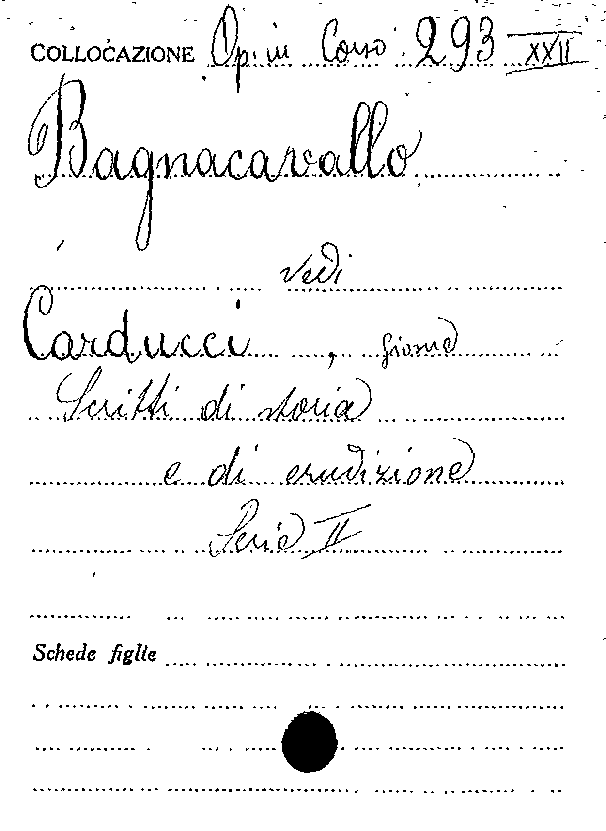 COLLOCAZIONE Op. in Corso 293 XXII
Bagnacavallo
vedi
Carducci , Giosuè
Scritti di storia
e di erudizione
Serie II
Schede figlie